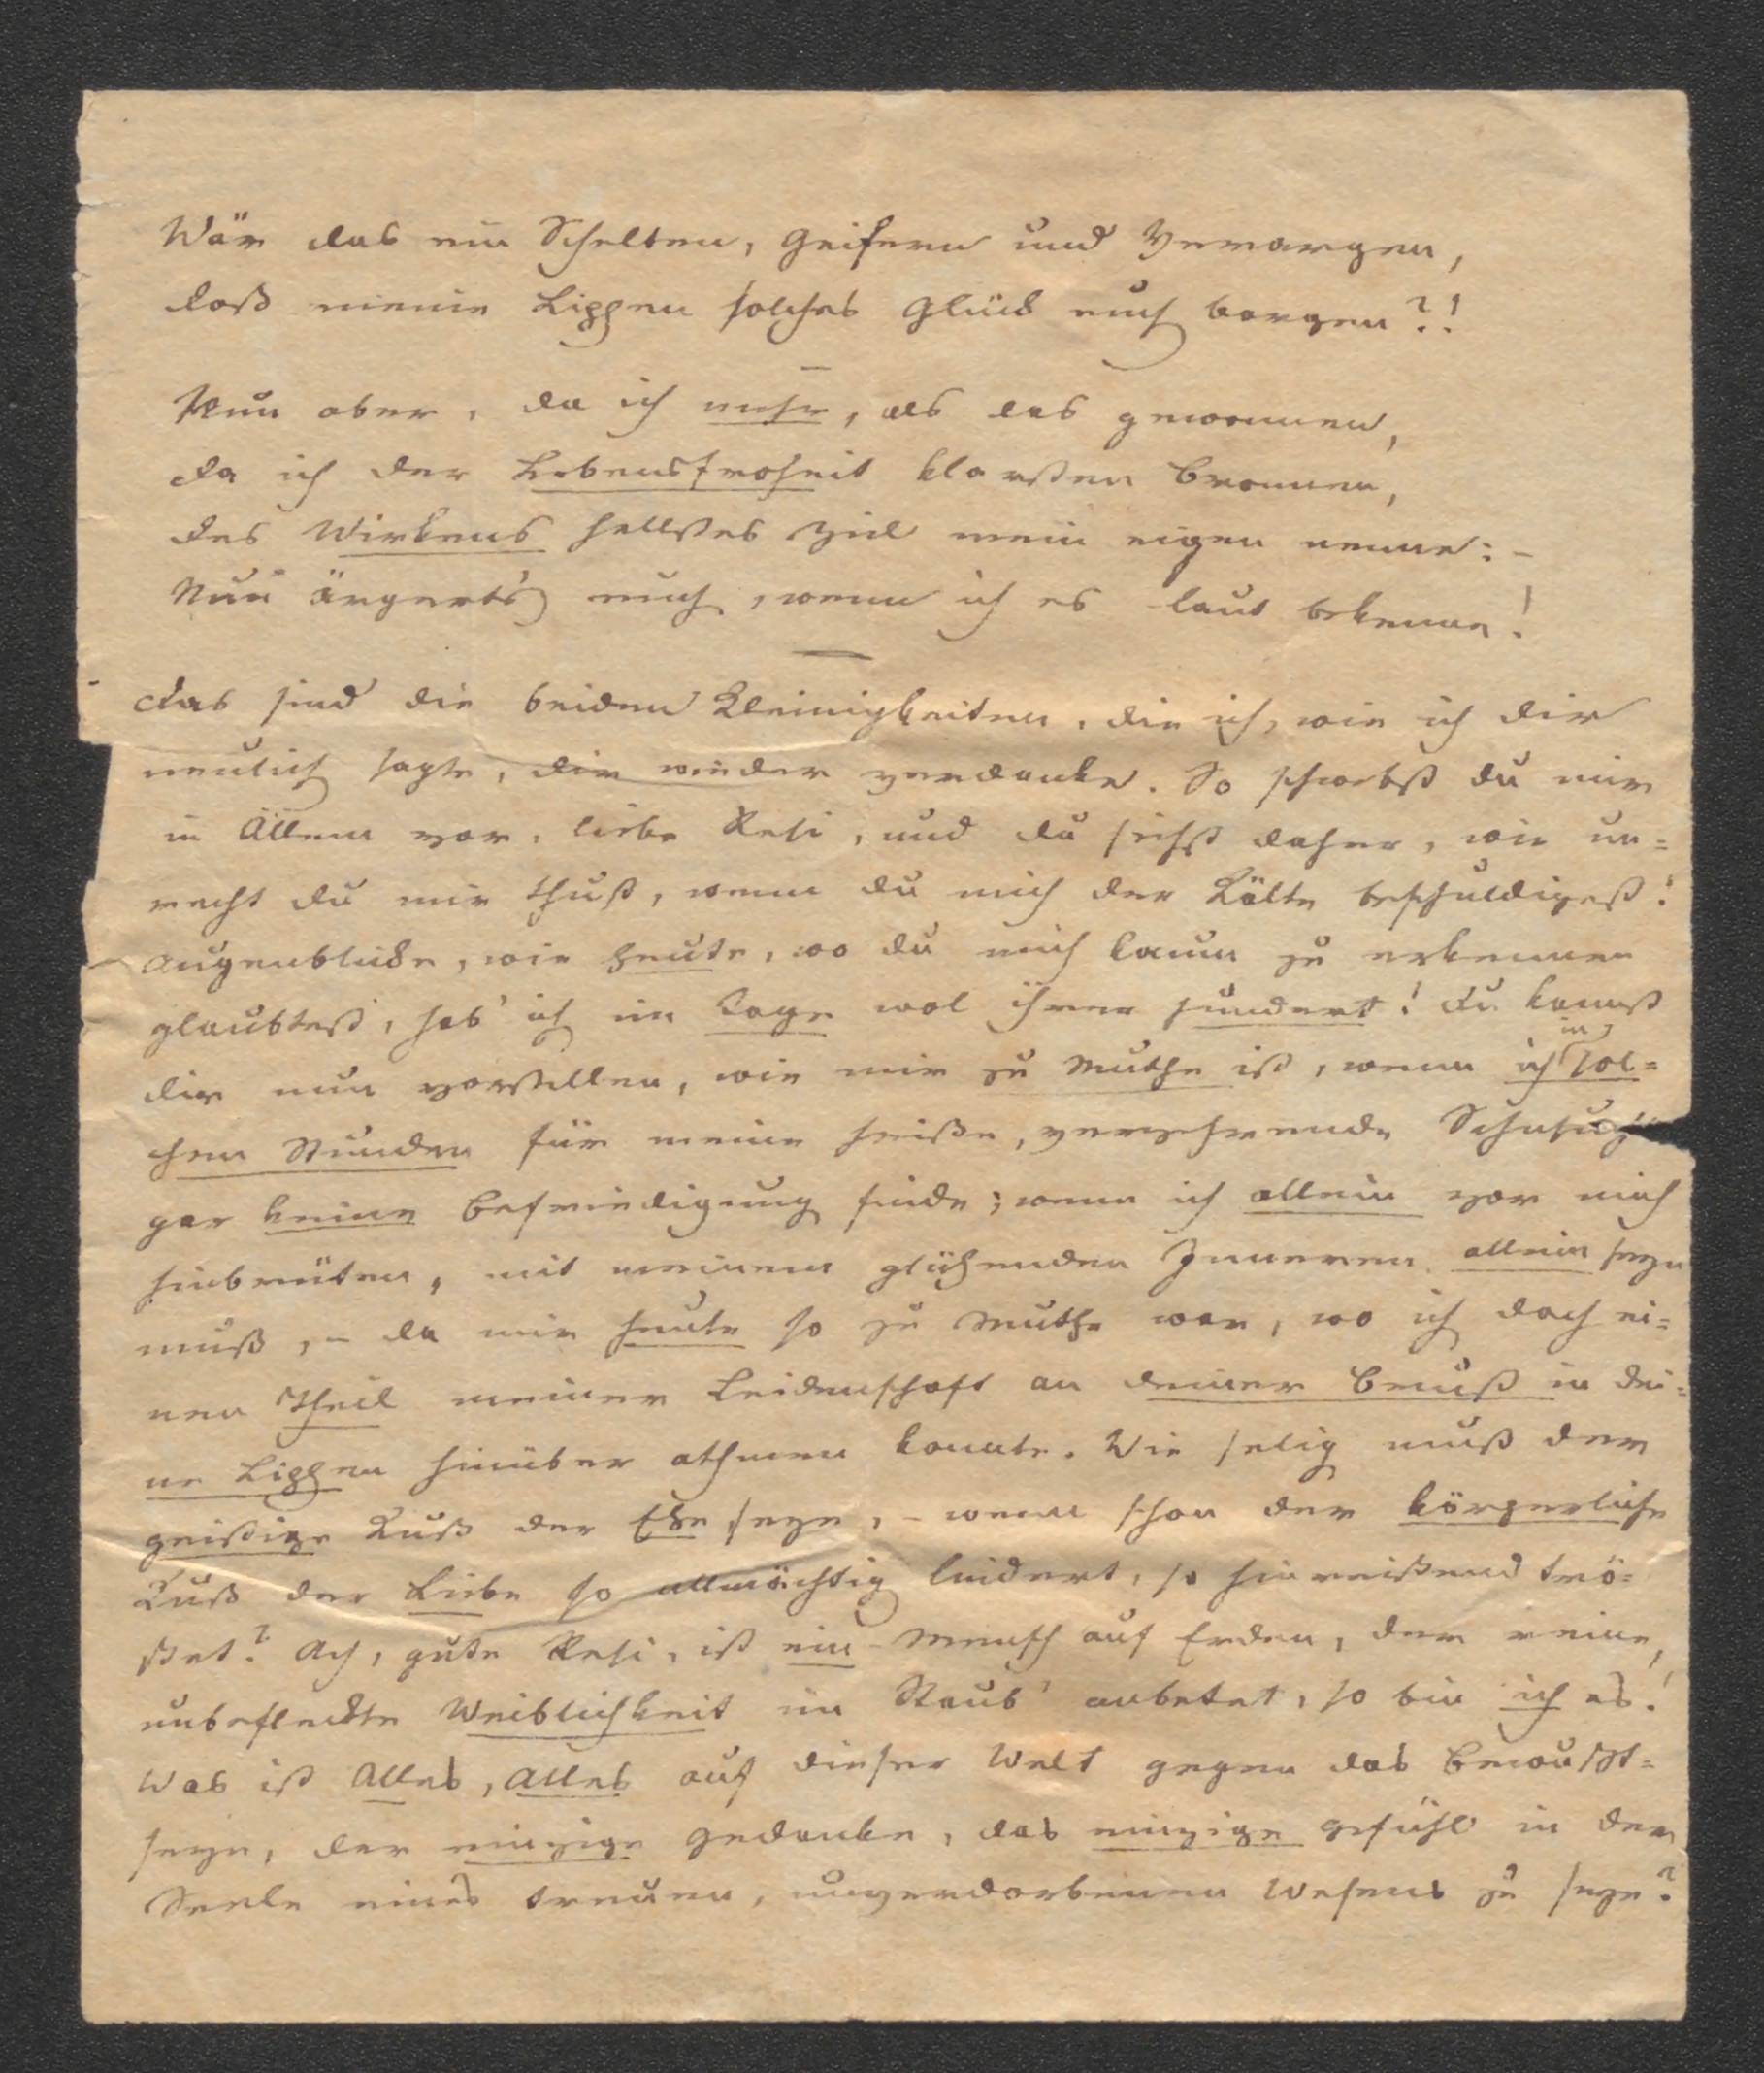 Wär das ein Schelten, Geifern und Verargen,
daß meine Lippen solches Glück euch bargen?!
Nun aber, da ich mehr, als das gewonnen,
da ich der Lebensfroheit klarsten Bronnen,
des Wirkens hellstes Ziel mein eigen nenne: –
Nun ärgerts euch, wenn ich es laut bekenne!
Das sind die beiden Kleinigkeiten, die ich, wie ich dir
neulich sagte, dir wieder verdanke. So schwebst du mir
in Allem vor, liebe Resi, und du siehst daher, wie un=
recht du mir thust, wenn du mich der Kälte beschuldigest!
Augenblicke, wie heute, wo du mich kaum zu erkennen
glaubtest, hab' ich im Tage wol ihrer hundert! Du kannst
dir nun vorstellen, wie mir zu Muthe ist, wenn ich in sol=
chen Stunden für meine heiße, verzehrende Sehnsucht
gar keine Befriedigung finde; wenn ich allein vor mich
hinbrüten, mit meinem glühenden Inneren allein seyn
muß, – da mir heute so zu Muthe war, wo ich doch ei=
nen Theil meiner Leidenschaft an deiner Brust in dei=
ne Lippen hinüber athmen konnte. Wie selig muß der
geistige Kuß der Ehe seyn, – wenn schon der körperliche
Kuß der Liebe so allmächtig lindert, so hinreißend trö=
stet? Ach, gute Resi, ist ein Mensch auf Erden, der reine,
unbefleckte Weiblichkeit im Staub' anbetet, so bin ich es!
Was ist Alles, Alles auf dieser Welt gegen das Bewußt=
seyn, der einzige Gedanke, das einzige Gefühl in der
Seele eines treuen, unverdorbenen Wesens zu seyn?